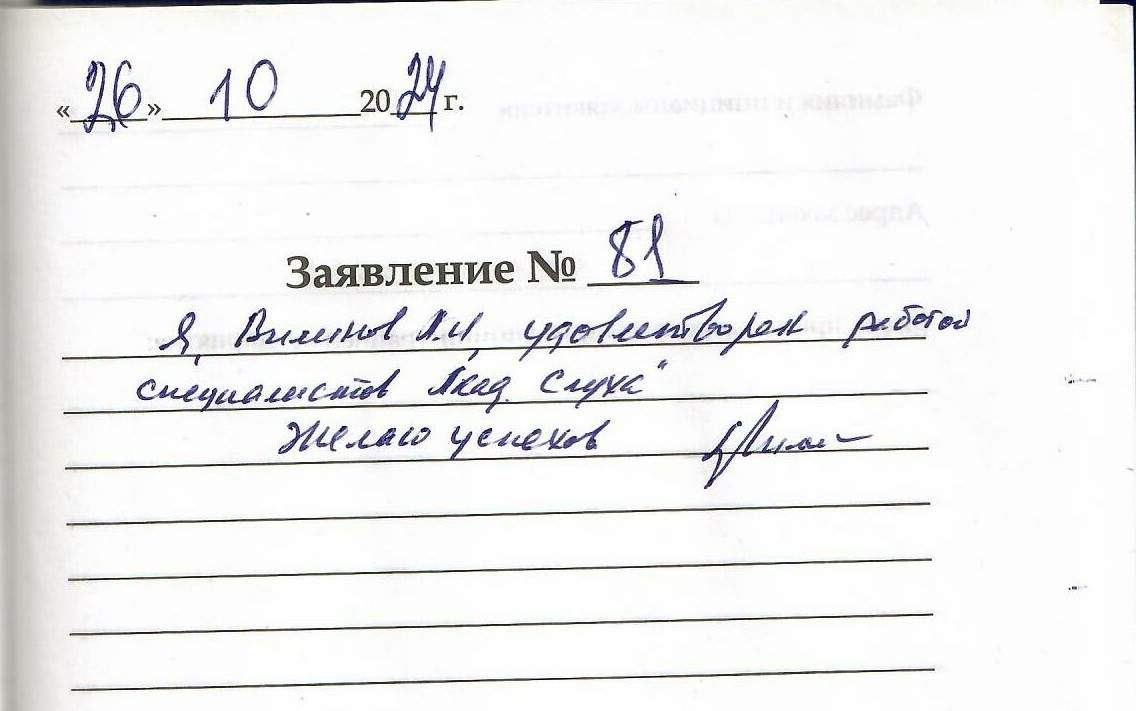 «26» 10 2024 г.
Заявление № 81
Я, удовлетворен работой
специалистов "Акад. Слуха"
Желаю успехов